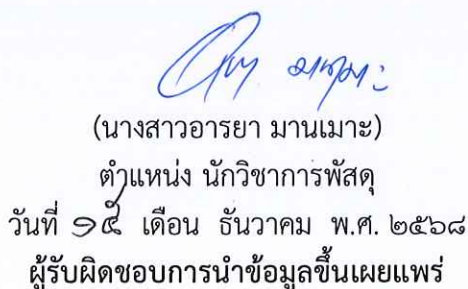 (นางสาวอารยา มานเมาะ)
ตำแหน่ง นักวิชาการพัสดุ
วันที่ ๑๕ เดือน ธันวาคม พ.ศ. ๒๕๖๘
ผู้รับผิดชอบการนำข้อมูลขึ้นเผยแพร่